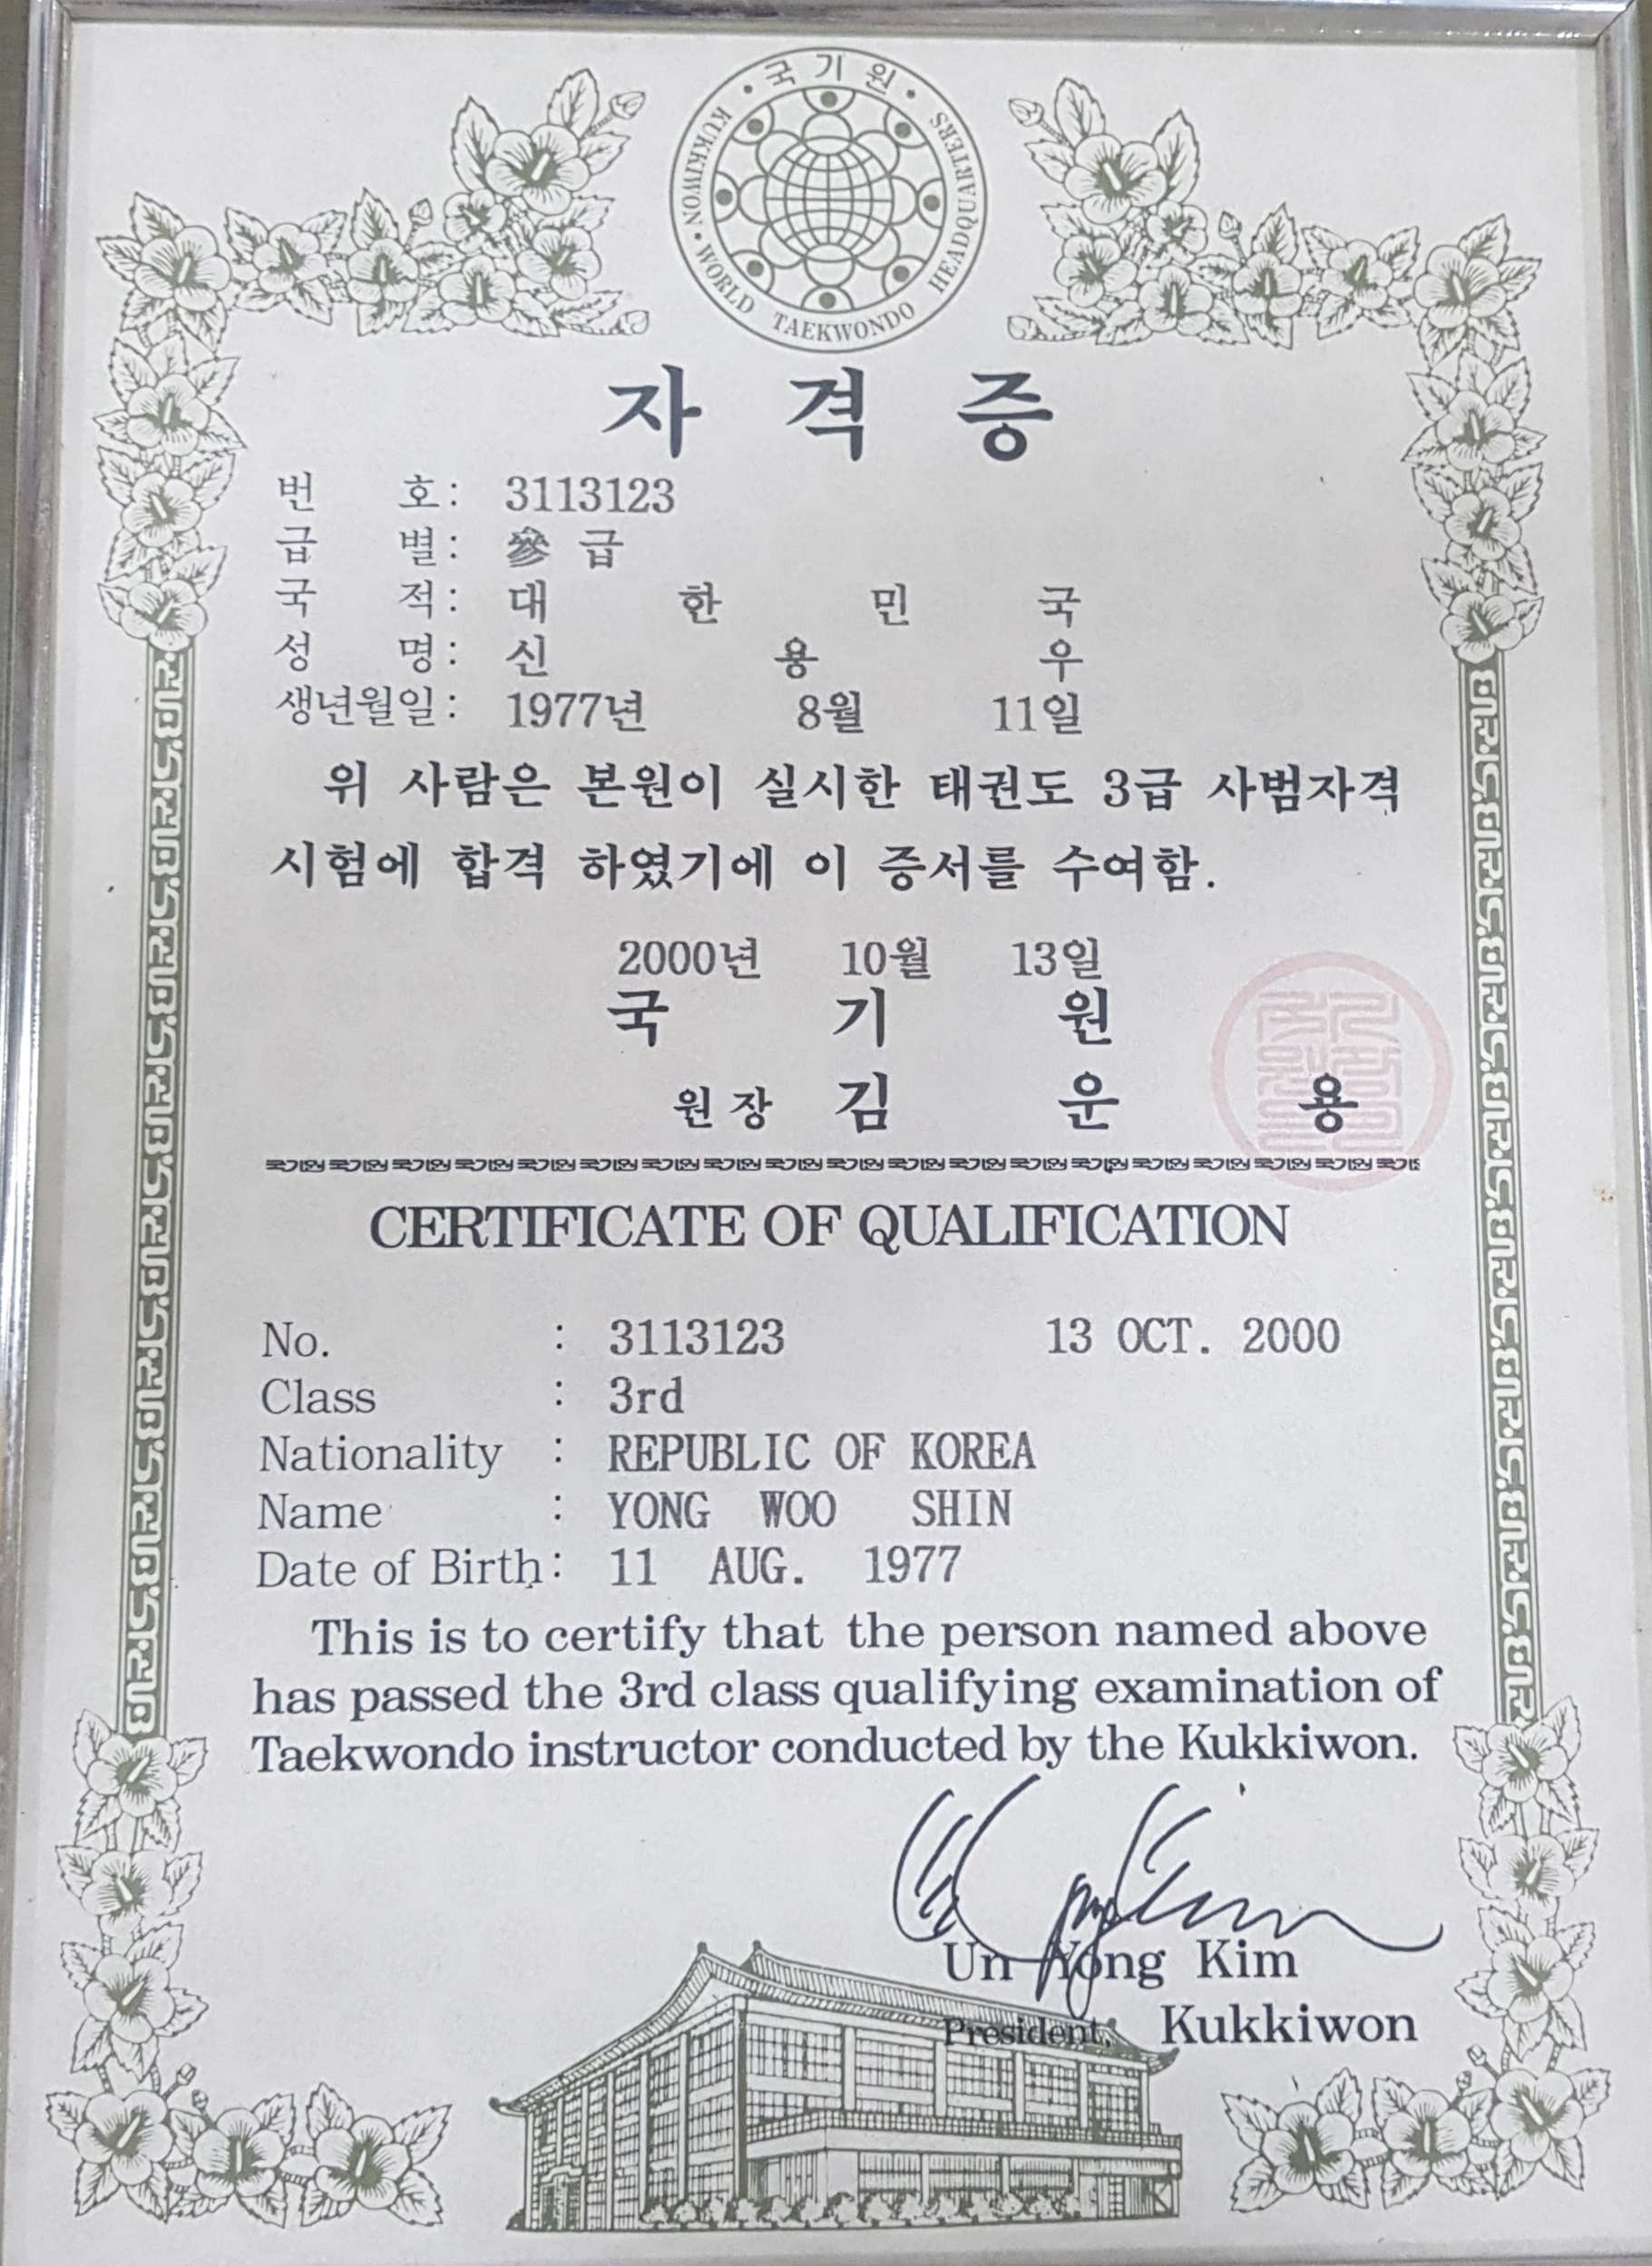 국기원
KUKKIWON • WORLD TAEKWONDO HEADQUARTERS
자 격 증
번 호: 3113123
급 별: 參 급
국 적: 대 한 민 국
성 명: 신 용 우
생년월일: 1977년 8월 11일
위 사람은 본원이 실시한 태권도 3급 사범자격
시험에 합격 하였기에 이 증서를 수여함.
2000년 10월 13일
국 기 원
원장 김 운 용
CERTIFICATE OF QUALIFICATION
No. : 3113123 13 OCT. 2000
Class : 3rd
Nationality : REPUBLIC OF KOREA
Name : YONG WOO SHIN
Date of Birth: 11 AUG. 1977
This is to certify that the person named above
has passed the 3rd class qualifying examination of
Taekwondo instructor conducted by the Kukkiwon.
Un Yong Kim
President, Kukkiwon